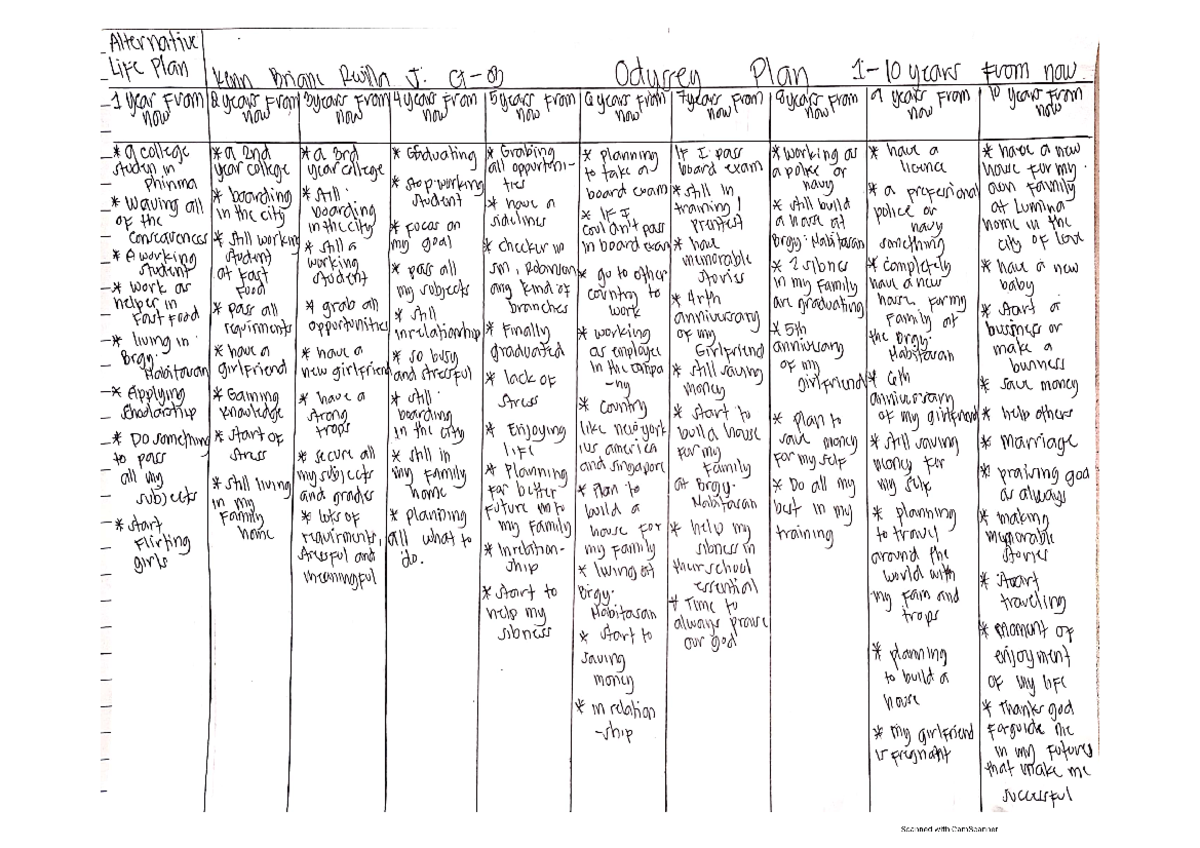 Alternative
Life Plan
Kenn Briane J. G-8
Odyssey Plan 1-10 years from now
1 year from
now
* a college
student in
Phinma
* Waving all
of the
* A working
student
* work as
helper in
Fast Food
* living in
Brgy.
Mabitasan
* Applying
Scholarship
* Do something
to pass
all my
subjects
* start
Flirting
girls
2 years from
now
* a 2nd
year college
* boarding
in the city
* still working
student
at Fast
Food
* pass all
requirments
* have a
girlfriend
* Gaining
knowledge
* start of
stress
* still living
in my
Family
home
3 years from
now
* a 3rd
year college
* still
boarding
in the city
* still a
working
student
* grab all
opportunities
* have a
new girlfriend
* have a
strong
trops
* secure all
my subjects
and grades
* lots of
requirments,
stressful and
meaningful
4 years from
now
* Graduating
* stop working
student
* focus on
my goal
* pass all
my subjects
* still
inrelationship
* so busy
and stressful
* still
boarding
in the city
* still in
my family
home
* planning
all what to
do.
5 years from
now
* Grabing
all opportuni-
ties
* have a
sidelines
* checker in
sm, Robinson
any kind of
branches
* Finally
graduated
* lack of
stress
* Enjoying
life
* Planning
for better
future into
my family
* Inrelation-
ship
* start to
help my
sibness
6 years from
now
* planning
to take a
board exam
* If I
couldn't pass
in board exam
* go to other
country to
work
* working
as employee
in the compa
-ny
* country
like new york
us america
and singapore
* Plan to
build a
house for
my family
* living at
Brgy.
Mabitasan
* start to
saving
money
* in relation
-ship
7 years from
now
If I pass
board exam
* still in
training /
* have
memorable
stories
* 4rth
anniversary
of my
Girlfriend
* still saving
money
* start to
build a house
for my
family
at Brgy.
Mabitasan
* help my
sibness in
their school
essential
* Time to
always praise
our god
8 years from
now
* working as
a police or
navy
* still build
a house at
Brgy. Mabitasan
* 2 sibnes
in my family
are graduating
* 5th
anniversary
of my
girlfriend
* plan to
save money
for my self
* Do all my
best in my
training
9 years from
now
* have a
* a profesional
police or
navy
something
* completely
have a new
house for my
family at
the Brgy.
Mabitasan
* 6th
anniversary
of my girlfriend
* still saving
money for
my self
* planning
to travel
around the
world with
my fam and
trops
* planning
to build a
house
* my girlfriend
is pregnant
10 years from
now
* have a new
house for my
own family
at Lumina
home in the
city of love
* have a new
baby
* start a
business or
make a
* save money
* help others
* marriage
* praising god
as always
* making
memorable
stories
* start
traveling
* moment of
enjoyment
of my life
* Thanks god
for guide me
in my future
that make me
successful
Scanned with CamScanner